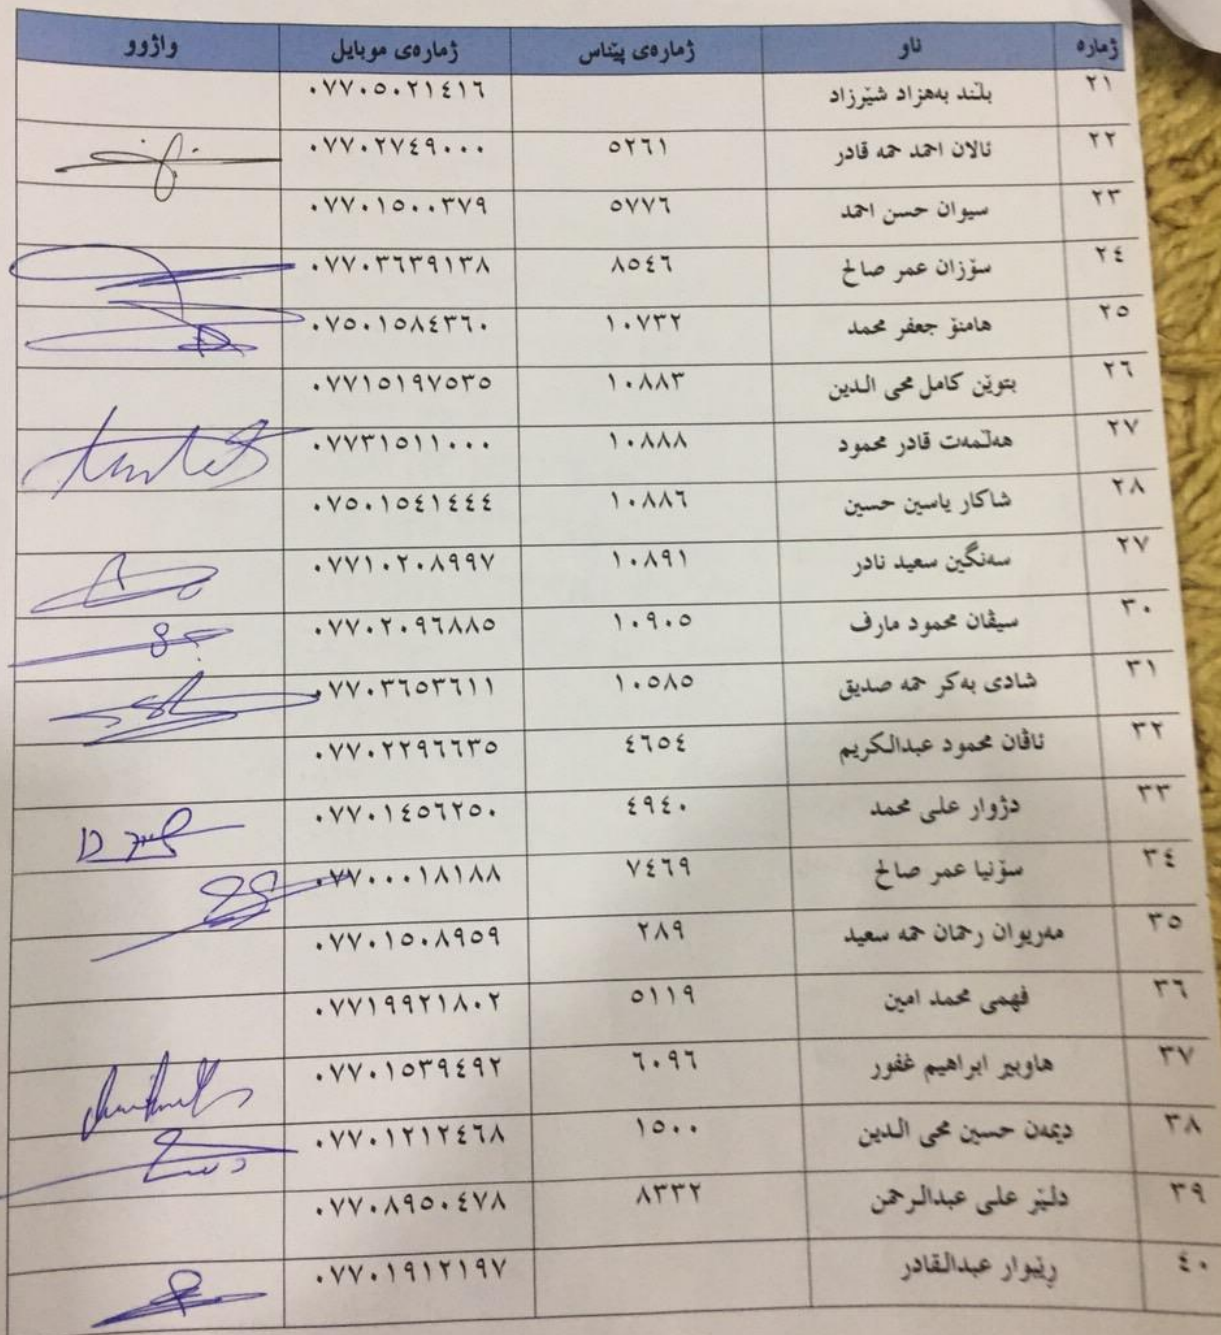 ژمارە ناو ژمارەی پێناس ژمارەی موبایل واژوو
٢١ بڵند بەهزاد شێرزاد ٠٧٧٠٥٠٢١٤١٦
٢٢ ئالان احمد حمە قادر ٥٢٦١ ٠٧٧٠٢٧٤٩٠٠٠
٢٣ سیوان حسن احمد ٥٧٧٦ ٠٧٧٠١٥٠٠٣٧٩
٢٤ سۆزان عمر صالح ٨٥٤٦ ٠٧٧٠٣٦٣٩١٣٨
٢٥ هامنۆ جعفر محمد ١٠٧٣٢ ٠٧٥٠١٥٨٤٣٦٠
٢٦ بتوێن كامل محی الدین ١٠٨٨٣ ٠٧٧١٥١٩٧٥٣٥
٢٧ هەڵمەت قادر محمود ١٠٨٨٨ ٠٧٧٣١٥١١٠٠٠
٢٨ شاكار یاسین حسین ١٠٨٨٦ ٠٧٥٠١٥٤١٤٤٤
٢٧ سەنگین سعید نادر ١٠٨٩١ ٠٧٧١٠٢٠٨٩٩٧
٣٠ سیڤان محمود مارف ١٠٩٠٥ ٠٧٧٠٢٠٩٦٨٨٥
٣١ شادی بەكر حمە صدیق ١٠٥٨٥ ٠٧٧٠٣٦٥٣٦١١
٣٢ ئاڤان محمود عبدالكریم ٤٦٥٤ ٠٧٧٠٢٢٩٦٦٣٥
٣٣ دژوار علی محمد ٤٩٤٠ ٠٧٧٠١٤٥٦٢٥٠
٣٤ سۆنیا عمر صالح ٧٤٦٩ ٠٧٧٠٠٠١٨١٨٨
٣٥ مەریوان رحمان حمە سعید ٢٨٩ ٠٧٧٠١٥٠٨٩٥٩
٣٦ فهمی محمد امین ٥١١٩ ٠٧٧١٩٩٢١٨٠٢
٣٧ هاوبیر ابراهیم غفور ٦٠٩٦ ٠٧٧٠١٥٣٩٤٩٢
٣٨ دیمەن حسین محی الدین ١٥٠٠ ٠٧٧٠١٢١٢٤٦٨
٣٩ دلێر علی عبدالرحمن ٨٣٣٢ ٠٧٧٠٨٩٥٠٤٧٨
٤٠ رێبوار عبدالقادر ٠٧٧٠١٩١٢١٩٧